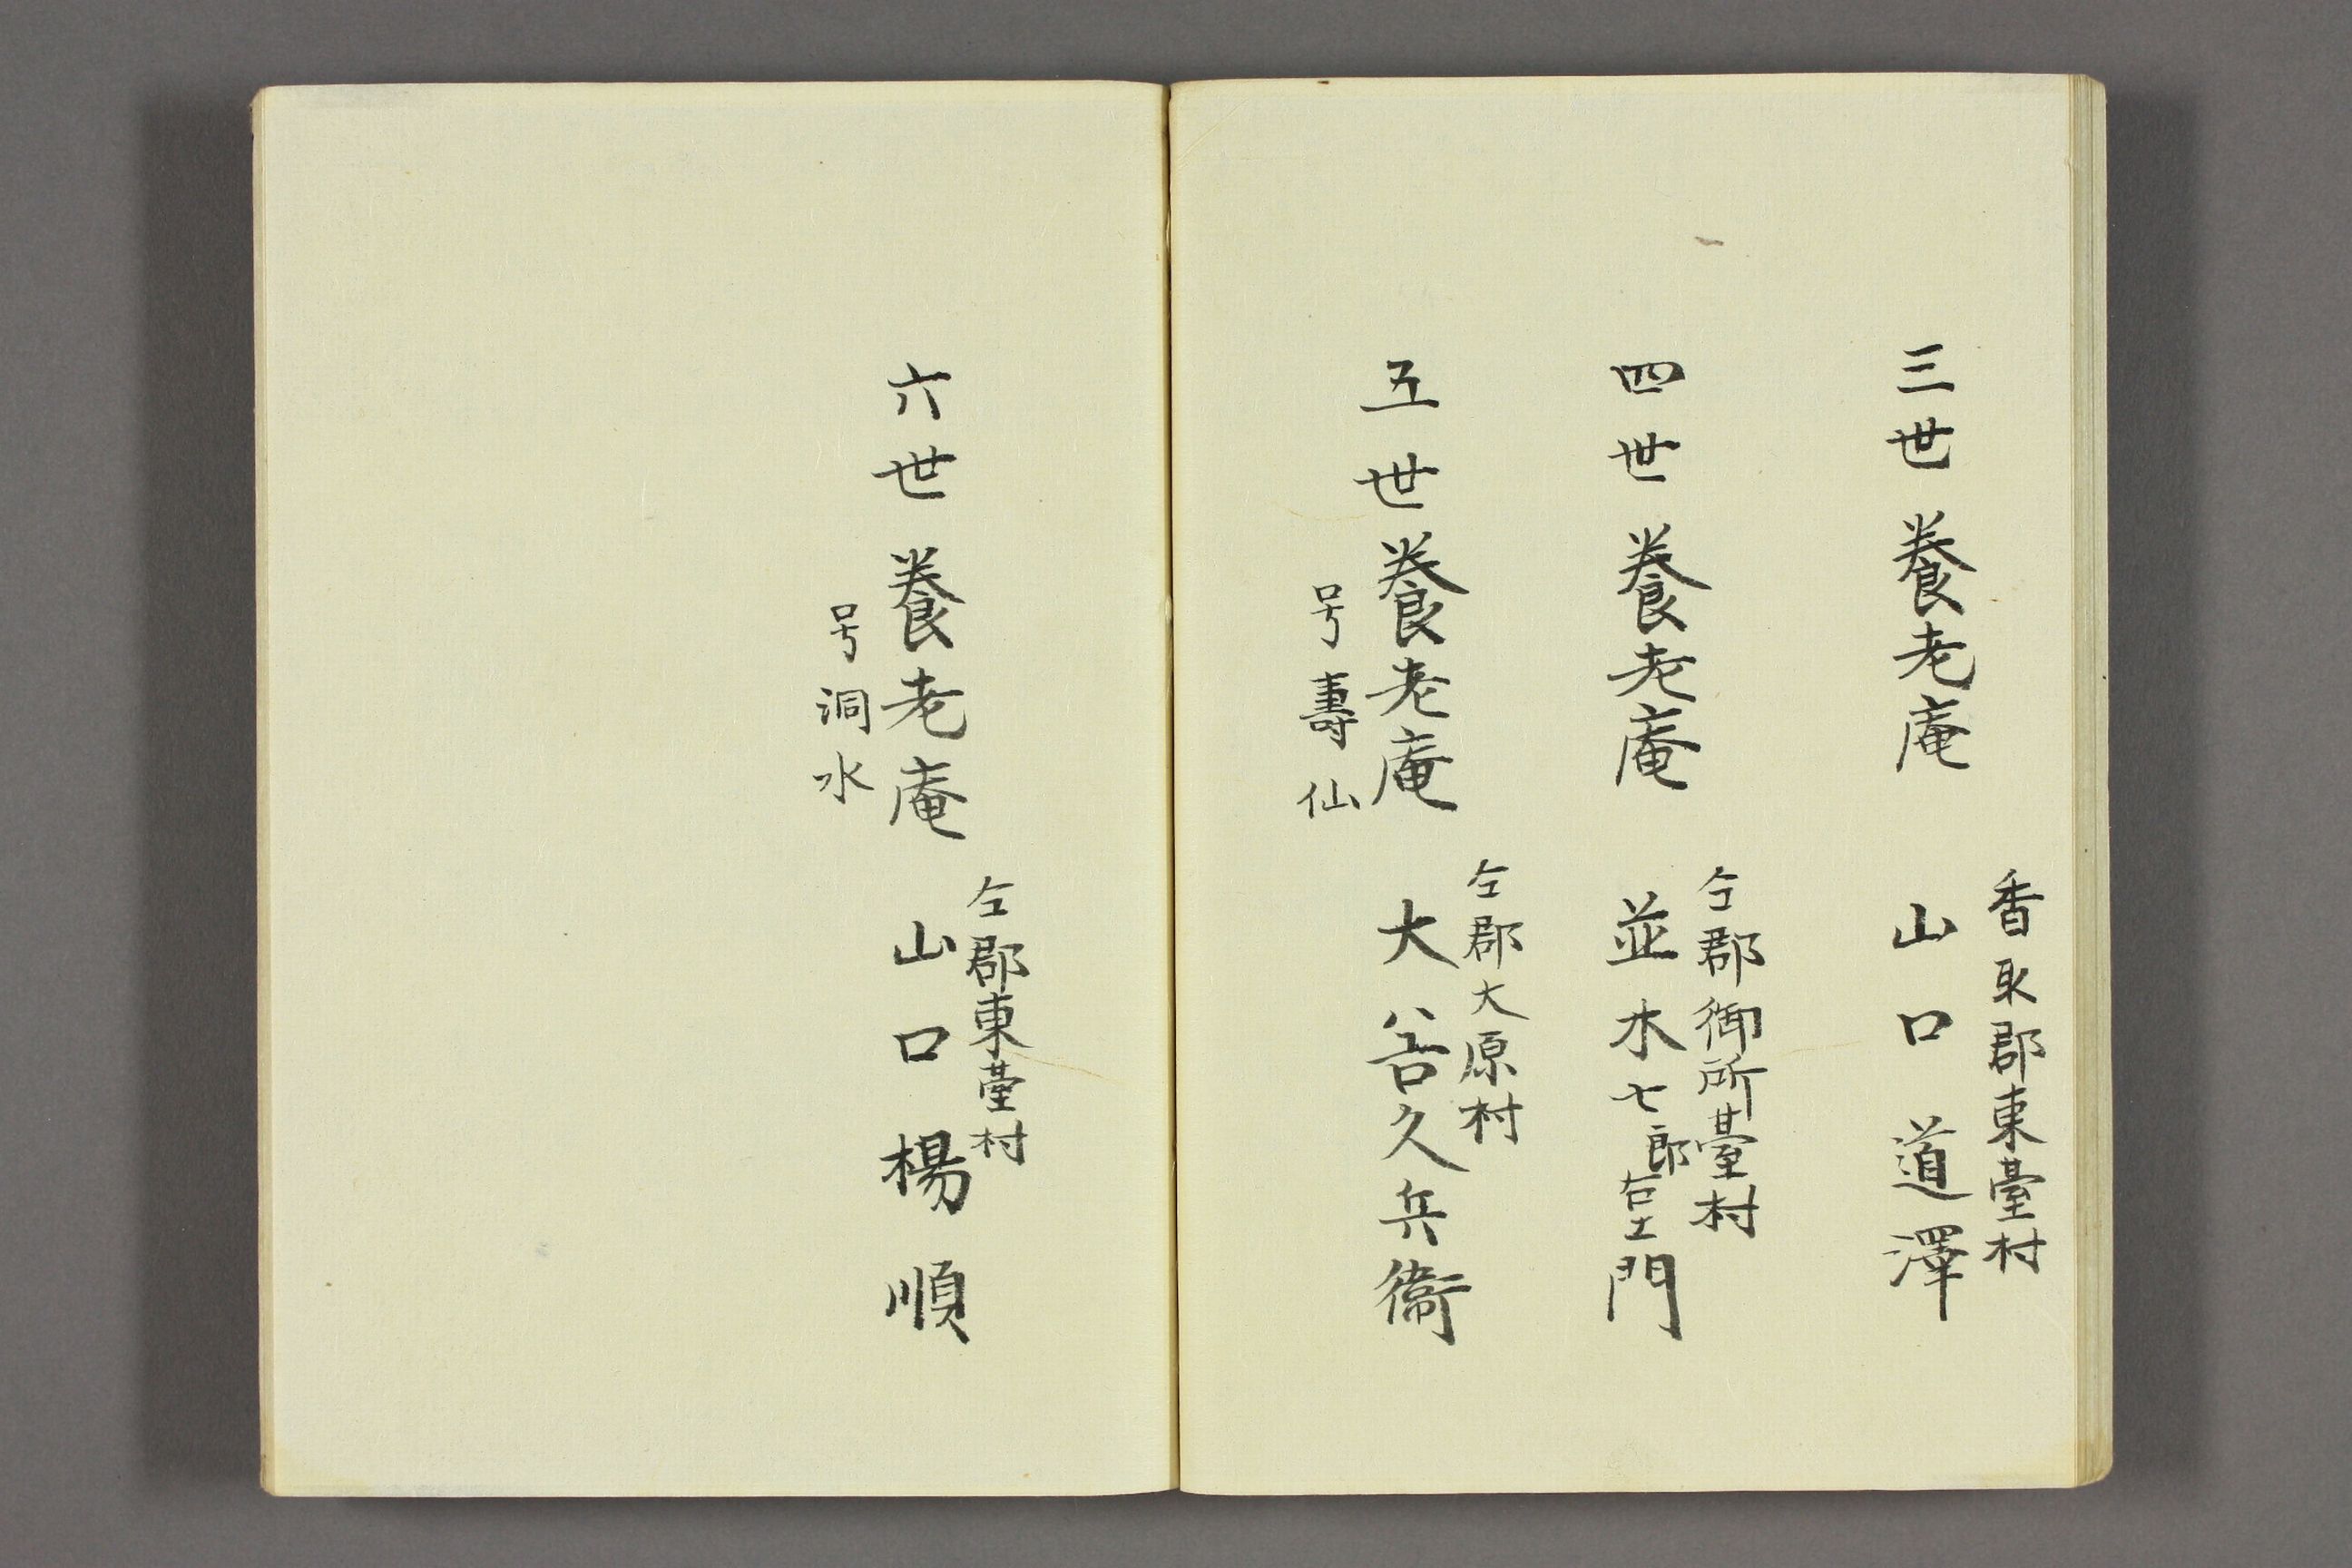 香取郡東臺村
三世養老庵 山口道澤
仝郡御所臺村
四世養老庵 並木七郎右エ門
仝郡大原村
五世養老庵 大谷久兵衛
号壽仙
仝郡東臺村
六世養老庵 山口楊順
号洞水